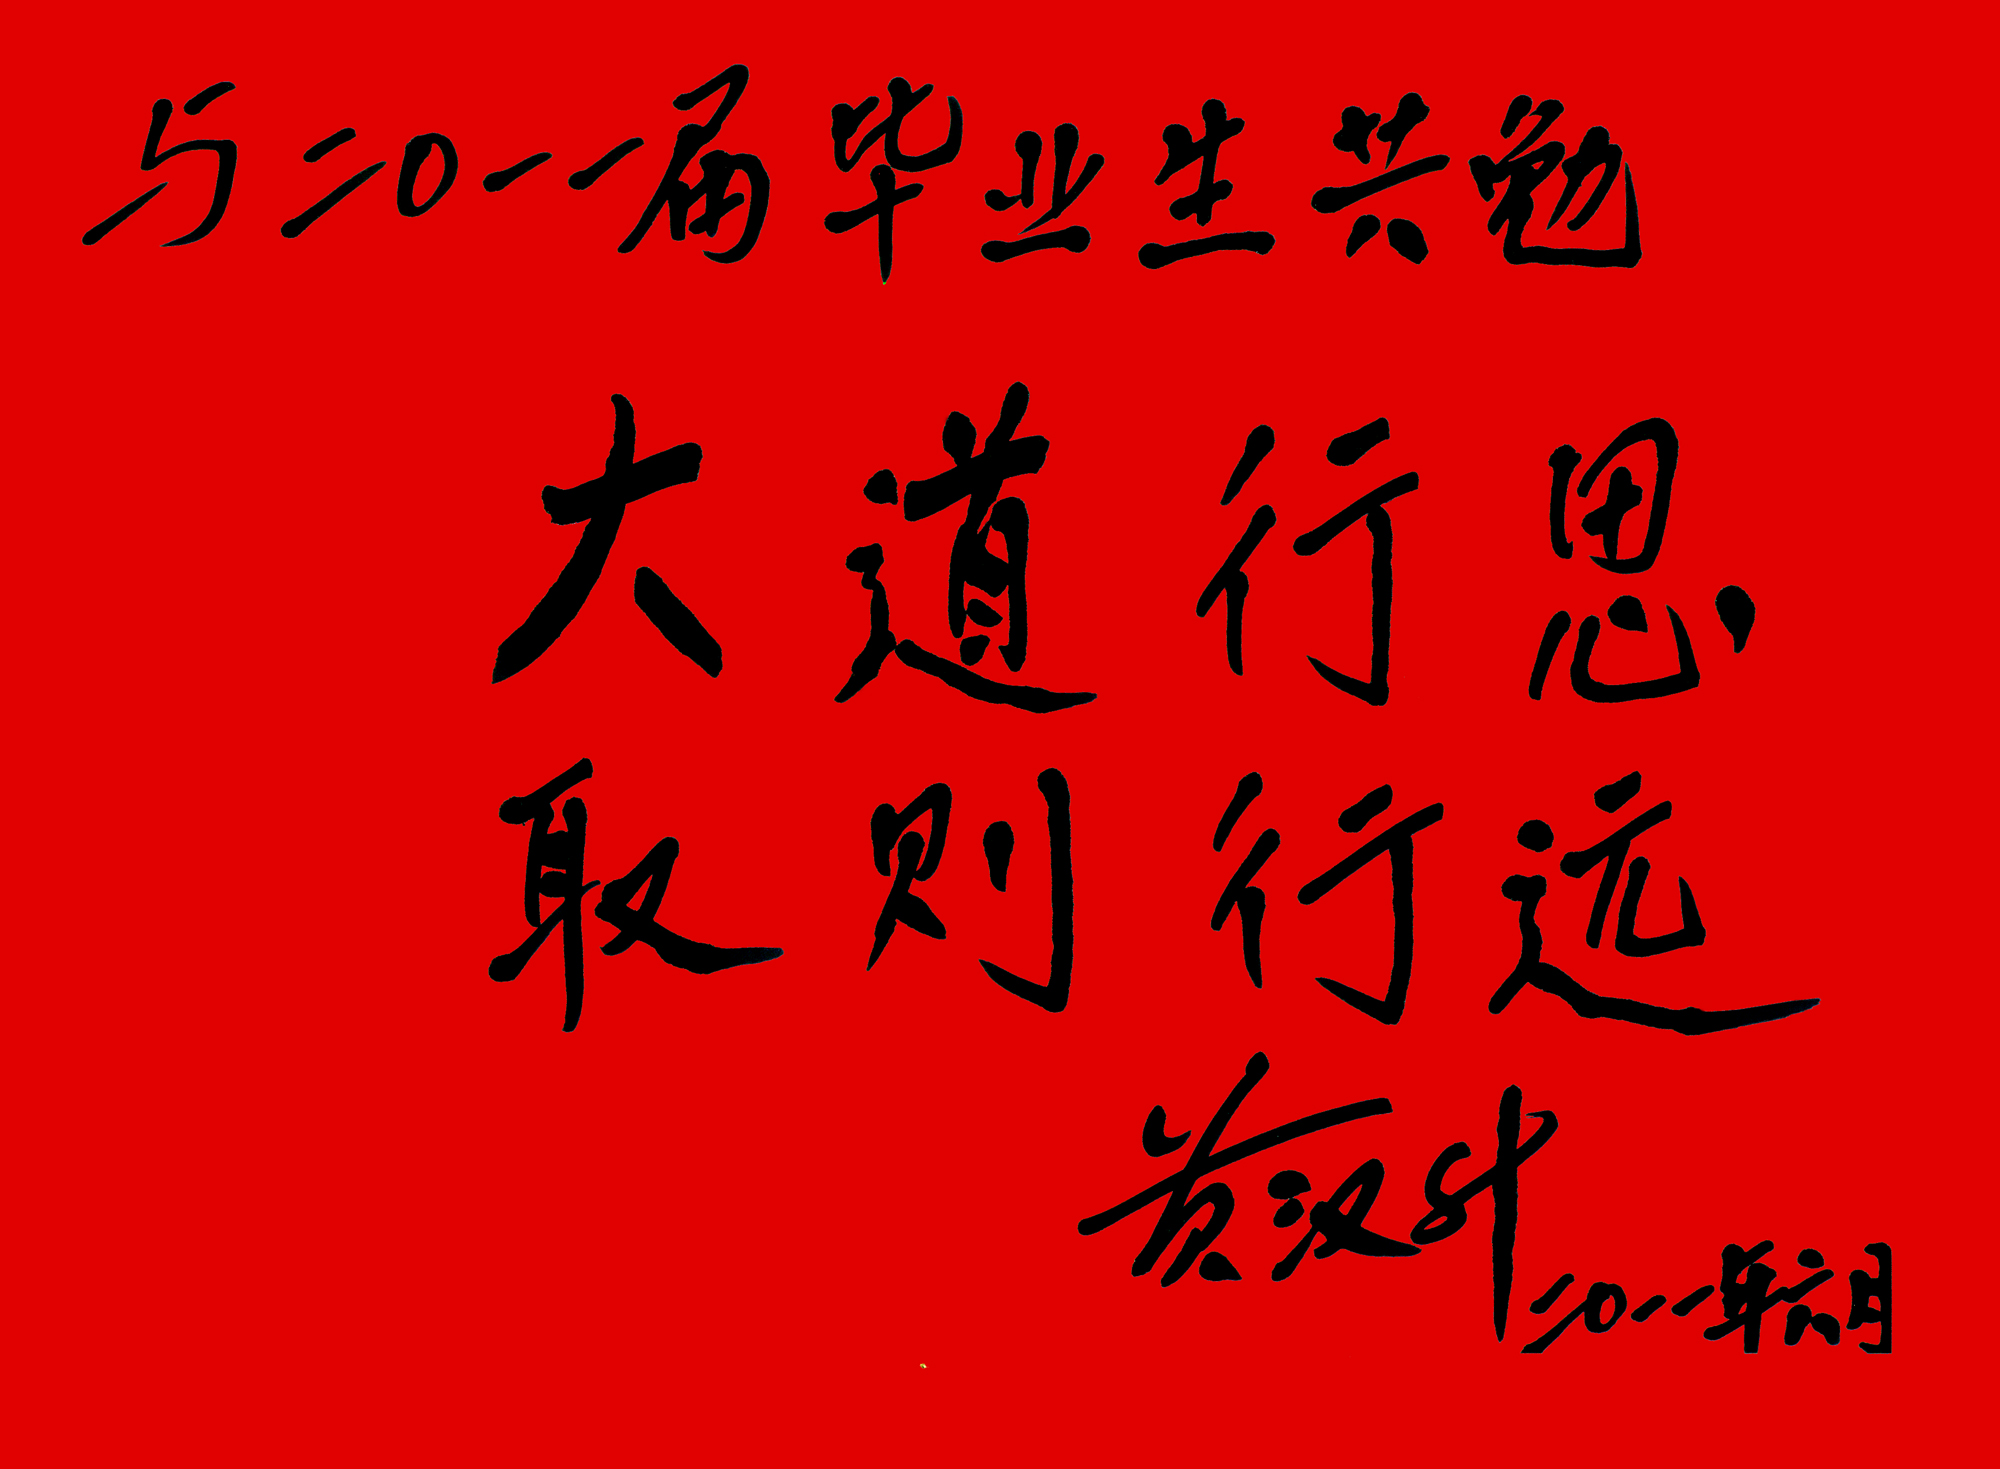 与二〇一一届毕业生共勉
大道行思
取则行远
黄汉升
二〇一一年六月